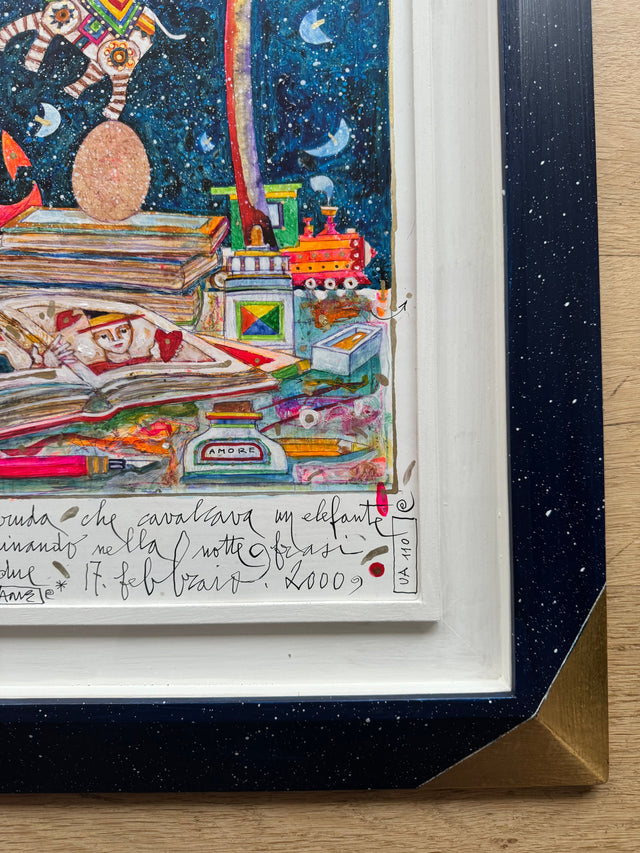 AMORE
che cavalcava un elefante
nella notte frasi
due 17. febbraio. 2000,
UA 110